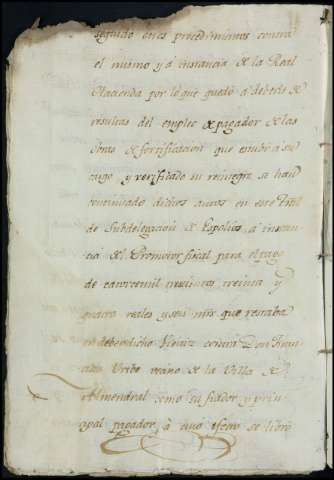 seguido en es procedimientos contra
el mismo y á instancia de la Real
Hacienda por lo que quedó á deber de
resultas del empleo de pagador de las
obras de fortificacion que estubo á su
cargo y verificado su reintegro se han
continuado dichos autos en este Trìbl
de Subdelegacion de Espolios á instan
cia del Promotor fiscal para el pago
de catorce mil trescientos treinta y
quatro reales y seis mrs que restaba
en deber dicho contra Don Fran
cisco Uribe vecino de la Villa de
Almendral como su fiador y prin
cipal pagador, á cuyo efecto se libró